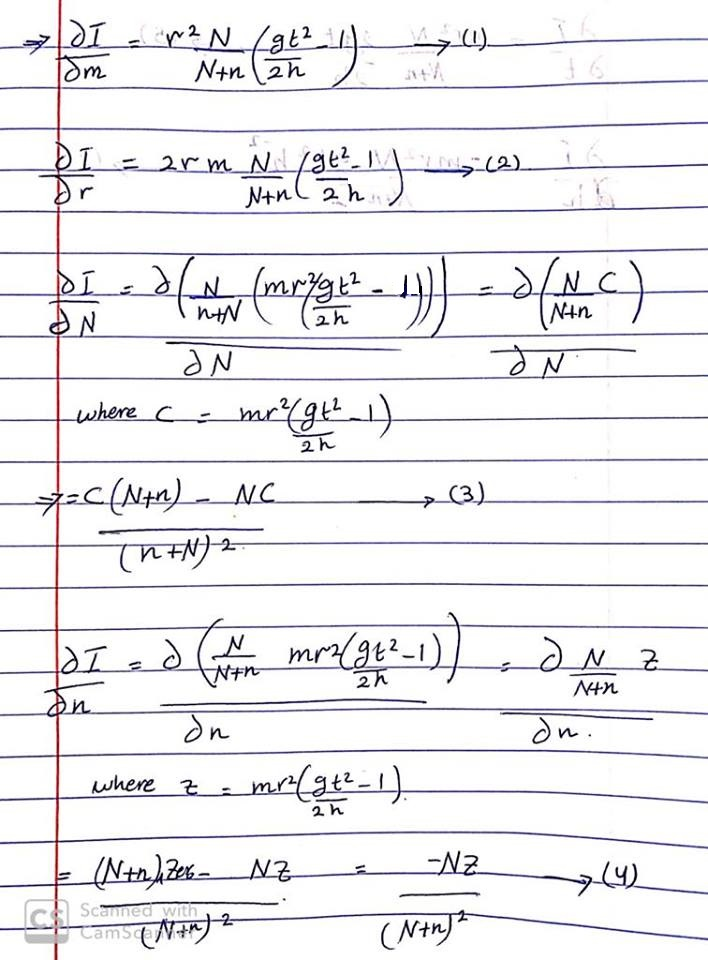 ⇒ ∂I/∂m = r² N/(N+n) (gt²/2h - 1) → (1)
∂I/∂r = 2rm N/(N+n) (gt²/2h - 1) → (2)
∂I/∂N = ∂(N/(n+N) (mr²(gt²/2h - 1)))/∂N = ∂(N/(N+n) C)/∂N
where C = mr²(gt²/2h - 1)
⇒ = C(N+n) - NC/(n+N)² → (3)
∂I/∂n = ∂(N/(N+n) mr²(gt²/2h - 1))/∂n = ∂ N/(N+n) Z/∂n.
where Z = mr²(gt²/2h - 1).
= (N+n) Zero - NZ/(N+n)² = -NZ/(N+n)² → (4)
CS Scanned with
CamScanner